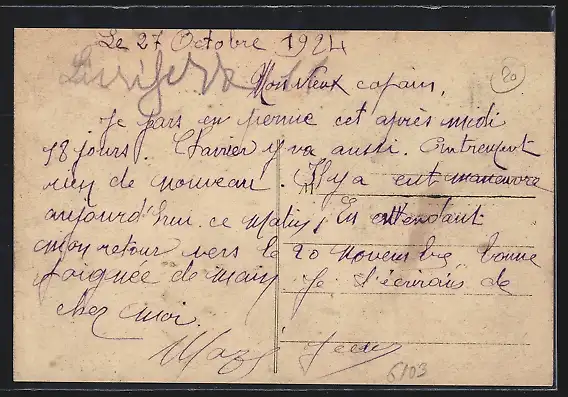 Le 27 Octobre 1924
20
Mon vieux copain,
Je pars en permie cet après midi
18 jours. Charrier y va aussi. Autrement
rien de nouveau. Il y a eut manœuvre
aujourd'hui ce matin, En attendant
mon retour vers le 20 novembre bonne
poignée de main Je t'écrirais de
chez moi.
6103